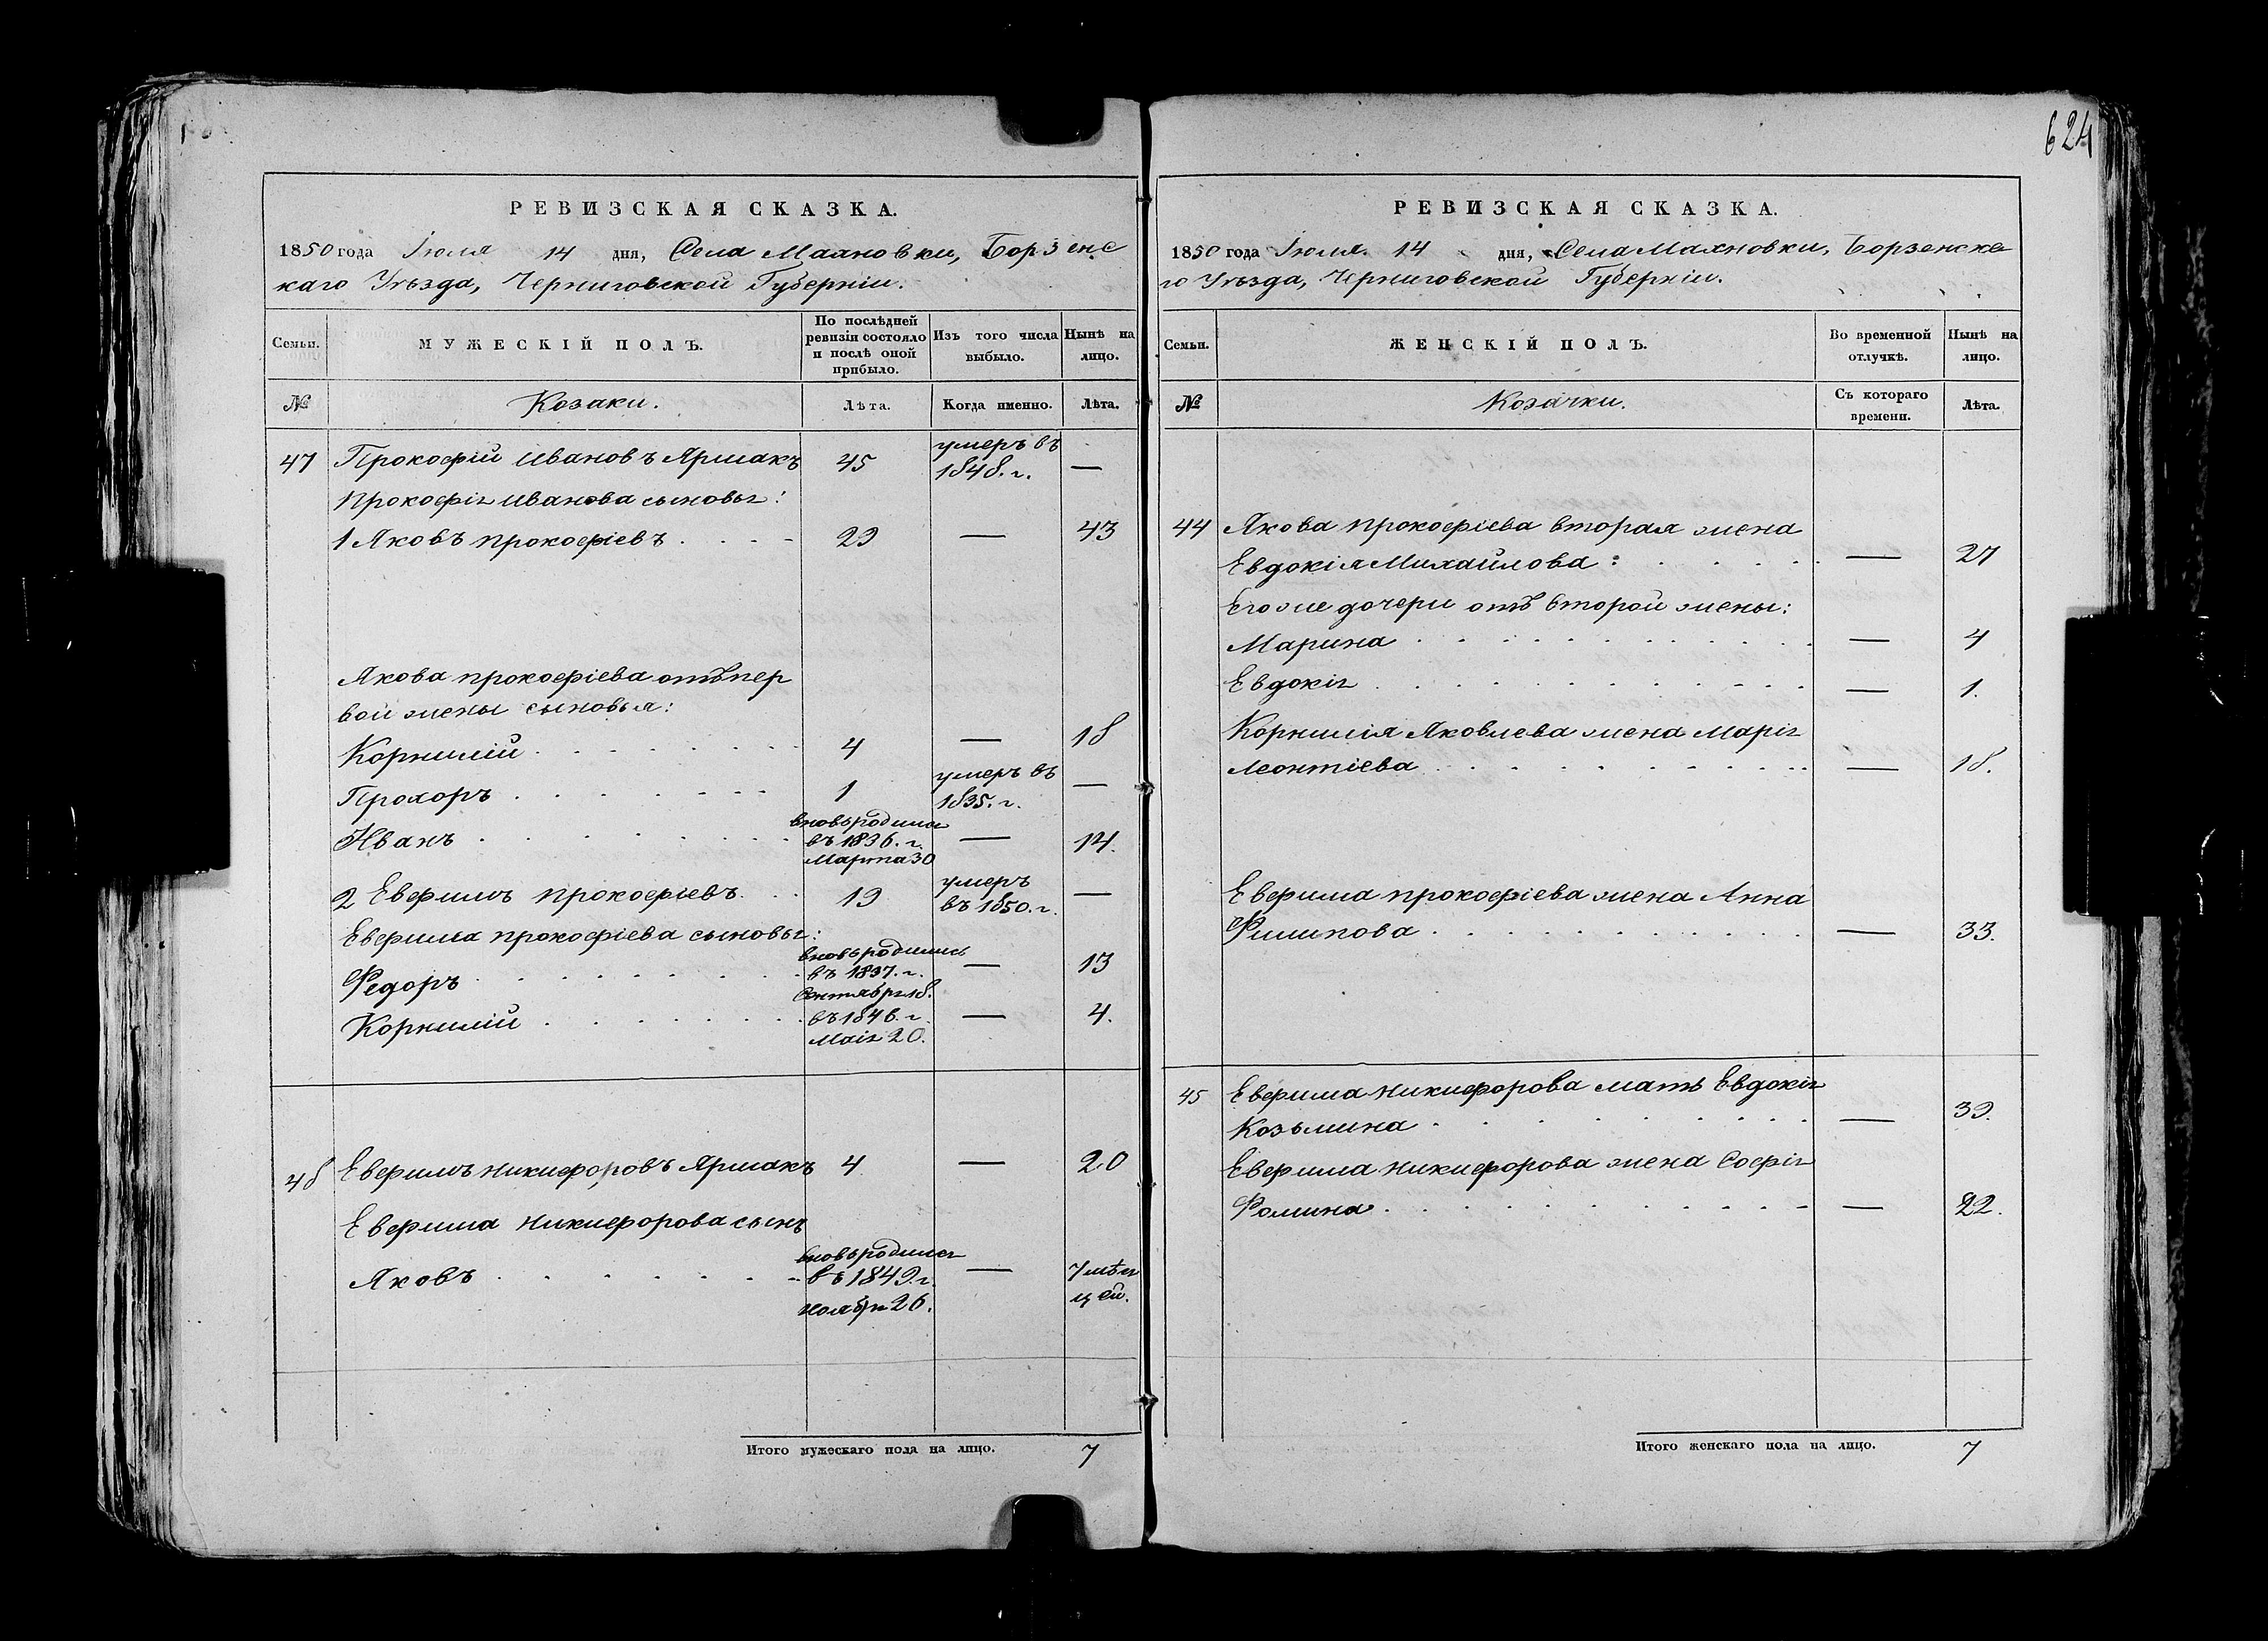 624
РЕВИЗСКАЯ СКАЗКА.
1850 года Іюля 14 дня, Села Махновки, Борзенс
каго Уѣзда, Черниговской Губерніи.
Семьи.
МУЖЕСКІЙ ПОЛЪ.
По послѣдней
ревизіи состояло
и послѣ оной
прибыло.
Изъ того числа
выбыло.
Нынѣ на
лицо.
№
Козаки.
Лѣта.
Когда именно.
Лѣта.
47 Прокофій Ивановъ Ярмакъ 45 умеръ въ
1848. г. —
Прокофія Иванова сыновья:
1 Яковъ Прокофіевъ 29 — 43
Якова Прокофіева отъ пер
вой жены сыновья:
Корнилій 4 — 18
Прохоръ 1 умеръ въ
1835. г. —
Иванъ вновь родился
въ 1836. г.
Марта 30 — 14.
2 Евфимъ Прокофіевъ 19 умеръ
въ 1850. г. —
Евфима Прокофіева сыновья:
Федоръ вновь родились
въ 1837. г.
Сентября 18. — 13
Корнилій въ 1846. г.
Маія 20. — 4.
48 Евфимъ Никифоровъ Ярмакъ 4 — 20
Евфима Никифорова сынъ
Яковъ вновь родился
въ 1849. г.
Ноября 26. — 7 мѣся
цей.
Итого мужескаго пола на лицо. 7
РЕВИЗСКАЯ СКАЗКА.
1850 года Іюля. 14 дня, Села Махновки, Борзенска
го Уѣзда, Черниговской Губерніи.
Семьи.
ЖЕНСКІЙ ПОЛЪ.
Во временной
отлучкѣ.
Нынѣ на
лицо.
№
Козачки.
Съ котораго
времени.
Лѣта.
44 Якова Прокофіева вторая жена
Евдокія Михайлова: — 27
Его же дочери отъ второй жены:
Марина — 4
Евдокія — 1.
Корнилія Яковлева жена Марія
Леонтіева — 18.
Евфима Прокофіева жена Анна
Филипова — 33.
45 Евфима Никифорова мать Евдокія
Козьмина — 39.
Евфима Никифорова жена Софія
Фомина — 22.
Итого женскаго пола на лицо. 7